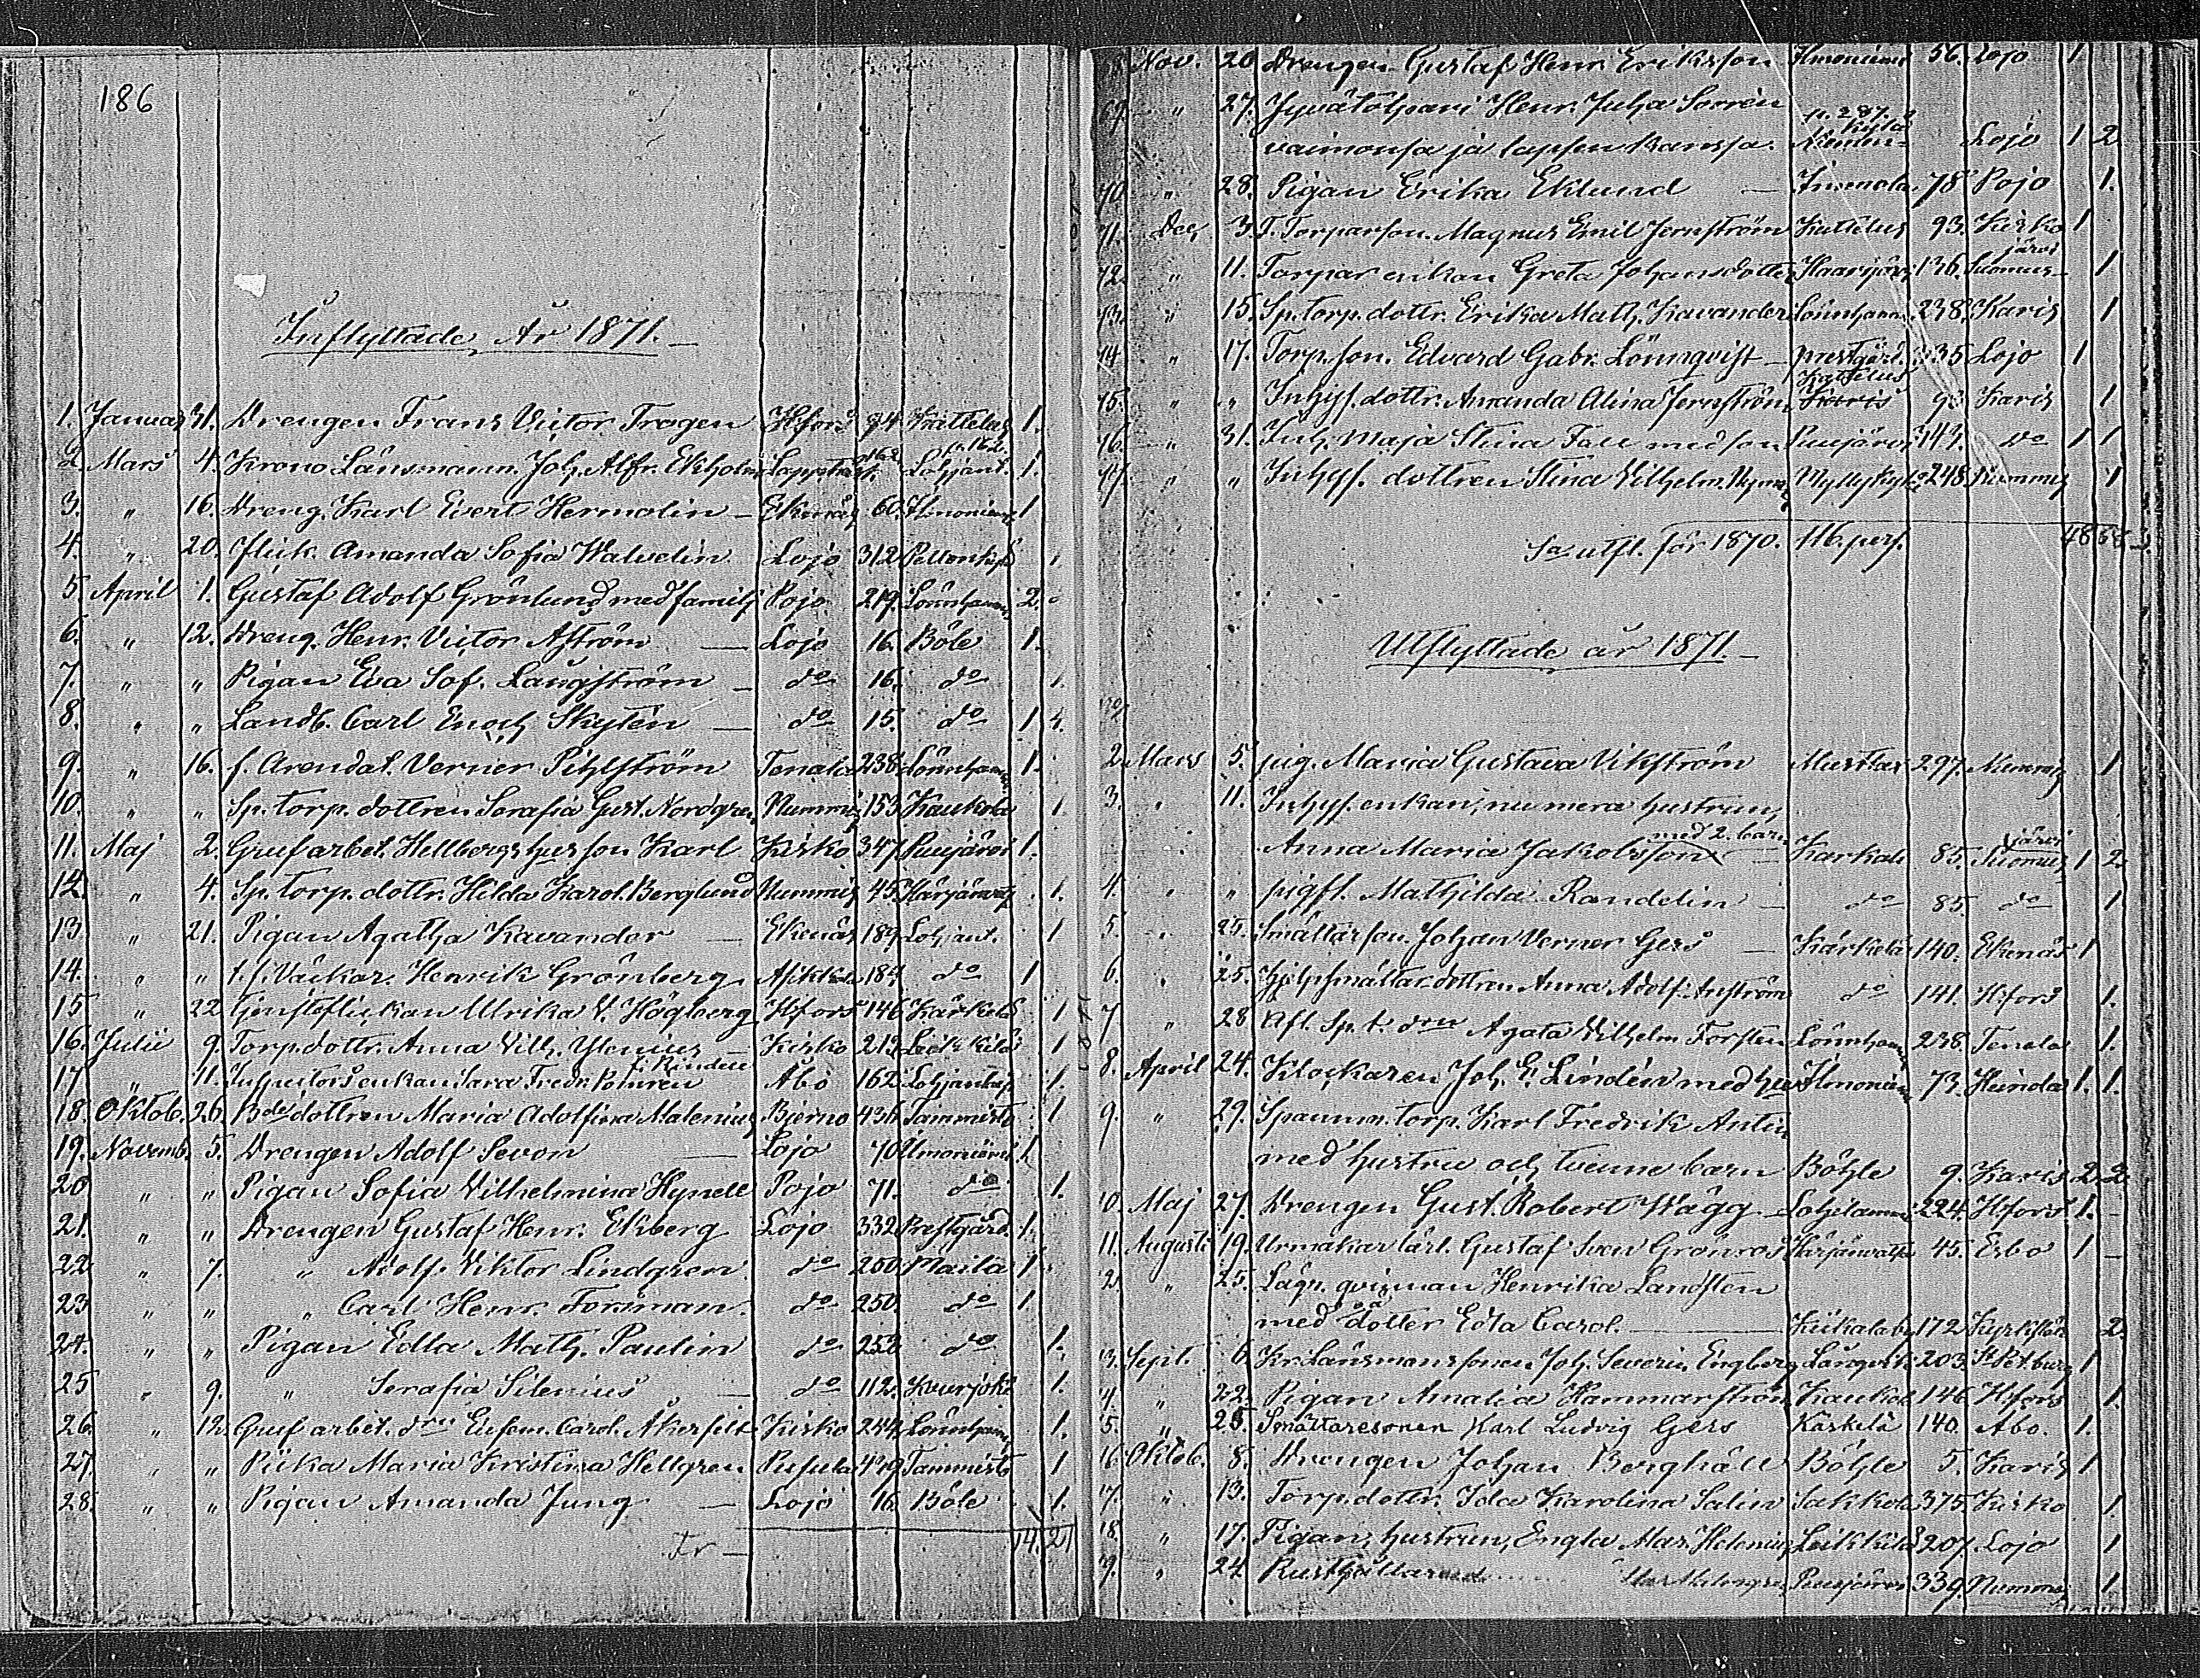 186
Inflyttade År 1871.
1. Januar 31. Drengen Frans Victor Trogen H:fors 94 Kattelus 1.
2. Mars 4. Krono Länsmann. Joh. Alfr. Ekholm Lohjant. 1.
3. " 16. Dreng. Karl Evert Hermolin Ekenäs 60. Ilmoniemi 1
4. " 20. Flick. Amanda Sofia Walvelin Lojo 312 Pellonkylä 1
5 April 1. Gustaf Adolf Grönlund med familj Pojo 219. Lönnhammar 2.
6. " 12. Dreng. Henr. Victor Åström Lojo 16. Böle 1.
7. " " Pigan Eva Sof. Långström do 16. do 1.
8. " " Landb. Carl Enoch Skytén do 15. do 1 4.
9. " 16. f. Arendat. Verner Pihlström Tenala 238. Lönnhammar 1.
10. " " Sp. torp. dottren Serafia Gust. Nordgren Nummis 153 Kaukola 1.
11. Maj 2. Grufarbet. Hellbergs hus son Karl Kisko 347 Puujärvi 1.
12. " 4. Sp. torp. dottr. Hilda Karol. Berglund Nummis 45. 1.
13 " 21. Pigan Agatha Kavander Ekenäs 189 Lohjant. 1
14. " " Henrik Grönberg 187. do 1
15 " 22 Tjensteflickan Ulrika V. Högberg H:fors 146 Kärkelä 1
16. Julii 9. Torp. dottr. Anna Vilh. Ylenius Kisko 213 Leikkilä 1
17 " 11. Inspectors enkan Sara Fredr. Åbo 162. Lohjantaip. 1.
18. Oktob. 26. Bde dottren Maria Adolfina Malenius Bjerno 436 Tammisto 1
19. Novemb. 5. Drengen Adolf Sevon Lojo 70 Ilmoniemi 1.
20 " " Pigan Sofia Vilhelmina Hynell Pojo 71. do 1.
21. " " Drengen Gustaf Henr. Ekberg Lojo 332 Prestgård. 1.
22 " 7. " Adolf Viktor Lindgren do 250 Maila 1
23 " " " Carl Henr. Forsman. do 250. do 1
24. " " Pigan Edla Math. Paulin do 250 do 1.
25 " 9. " Serafia Silenius do 112. 1.
26. " 12. Grufarbet. dru Eufem. Carol. Åkerfelt Kisko 244. Lönnhammar 1.
27. " " Piika Maria Kristina Hellgren Pusula 419 Tammisto 1
28. " " Pigan Amanda Jung Lojo 16. Böle 1.
Tr 14. 21
68 Nov. 20 Drengen Gustaf Henr. Eriksson Ilmoniemi 56. Lojo 1
69. " 27. Henr. Juha Sorrén n. 287.
vaimonsa ja lapsen kanssa. Kylä Lojo 1 2.
70. " 28. Pigan Erika Eklund Immola 78 Pojo 1.
71. Dec. 3. T. Torparson. Magnus Emil Jernström Kattelus 93. Kisko 1
72. " 11. Torpar enkan Greta Johansdotter Haarjärvi 136. Suomusjärvi 1
73. " 15. Sp. torp. dottr. Erika Math. Kavander Lönnhammar 238. Karis 1
74 " 17. Torp. son. Edvard Gabr. Lönnqvist Prestgård. 335 Lojo 1
75. " " Inhys. dottr. Amanda Alina Jernström Kattelus Karis 1
76. " 31. Inh. Maja Stina Fall med son Puujärvi 347. do 1 1
77. " " Inhys. dottren Stina Vilhelm. Myllykylä 248. Nummis 1
Sa utfl. för 1870. 116. pers. 48 68
Utflyttade år 1871.
2. Mars 5. pig. Maria Gustava Vikström Mustlax 297. Nummis 1
3. " 11. Inhys. enkan, numera hustrun,
Anna Maria Jakobsson med 2. barn Karkali 85. Suomusjärvi 1 2
4. " " pigfl. Mathilda Randelin do 85. do 1
5. " 25. Småttarson. Johan Verner Gers Kärkelä 140. Ekenäs 1
6. " 25. Hjelpsmåttar dottren Anna Adolf. Anström do 141. H:fors 1.
7 " 28 Afl. Sp. t. dru Agata Vilhelm. Forsten Lönnhammar 238. Tenala 1.
8. April 24. Klockaren Joh. E. Lindén med hus Ilmoniemi 73. Heinola 1. 1.
9. " 29. Spannm. torp. Karl Fredrik Antin
med hustru och tvenne barn Böhle 9. Karis 2. 2.
10. Maj 27. Drengen Gust. Robert Wägg 224. H:fors 1.
11. Augusti 19. Urmakar lärl. Gustaf Sven Grönroos 45. Esbo 1
12. " 25. Lägn. qvinnan Henrika Landsten
med dotter Edla Carol. Kiikalaby 172 Kyrkslätt 2.
13. Sept. 6. Kr. Länsmanssonen Joh. Severin Engberg Långvik 203. St Petburg 1
14. " 22. Pigan Amalia Hammarström Kaukola 146 H:fors 1.
15. " 25. Småttaresonen Karl Ludvig Gers Kärkelä 140. Åbo. 1.
16. Oktob. 8. Drengen Johan Berghäll Böhle 5. Karis 1
17. " 13. Torp. dottr. Ida Karolina Salin Sakkola 375. Kisko 1
18. " 17. Pigan, hustrun, Engla Mar. Helenius Leikkilä 207. Lojo 1
19. " 24. Rusthållare Puujärvi 339. Nummis 1.